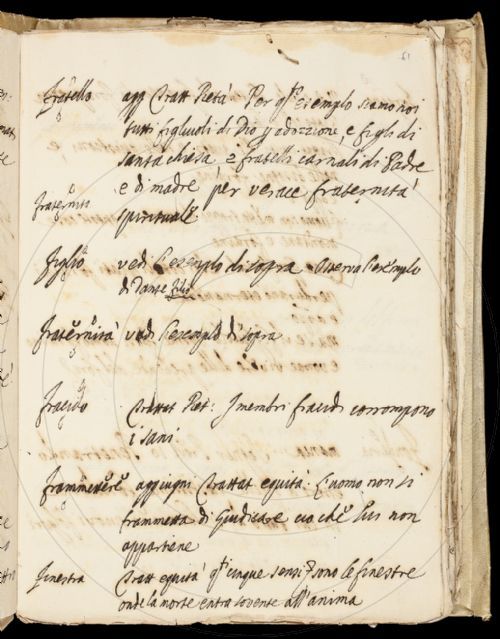 61
Fratello agg Tratt Pietà Per qto esemplo siamo noi
tutti figliuoli di Dio p adozzione, e figli di
santa chiesa e fratelli carnali di Padre
e di madre per verace fraternità
spirituale
Figlio vedi l'esemplo di sopra Osserva l'esemplo
di Dante filio
Fraternità vedi l'esemplo di sopra
Fracido Trattat Piet: I membri fracidi corrompono
i sani
Frammettere aggiugni Trattat equità: L'uomo non si
frammetta di Giudicare ciò che a lui non
appartiene
Finestra Tratt equità qti cinque sensi sono le finestre
onde la morte entra sovente all'anima